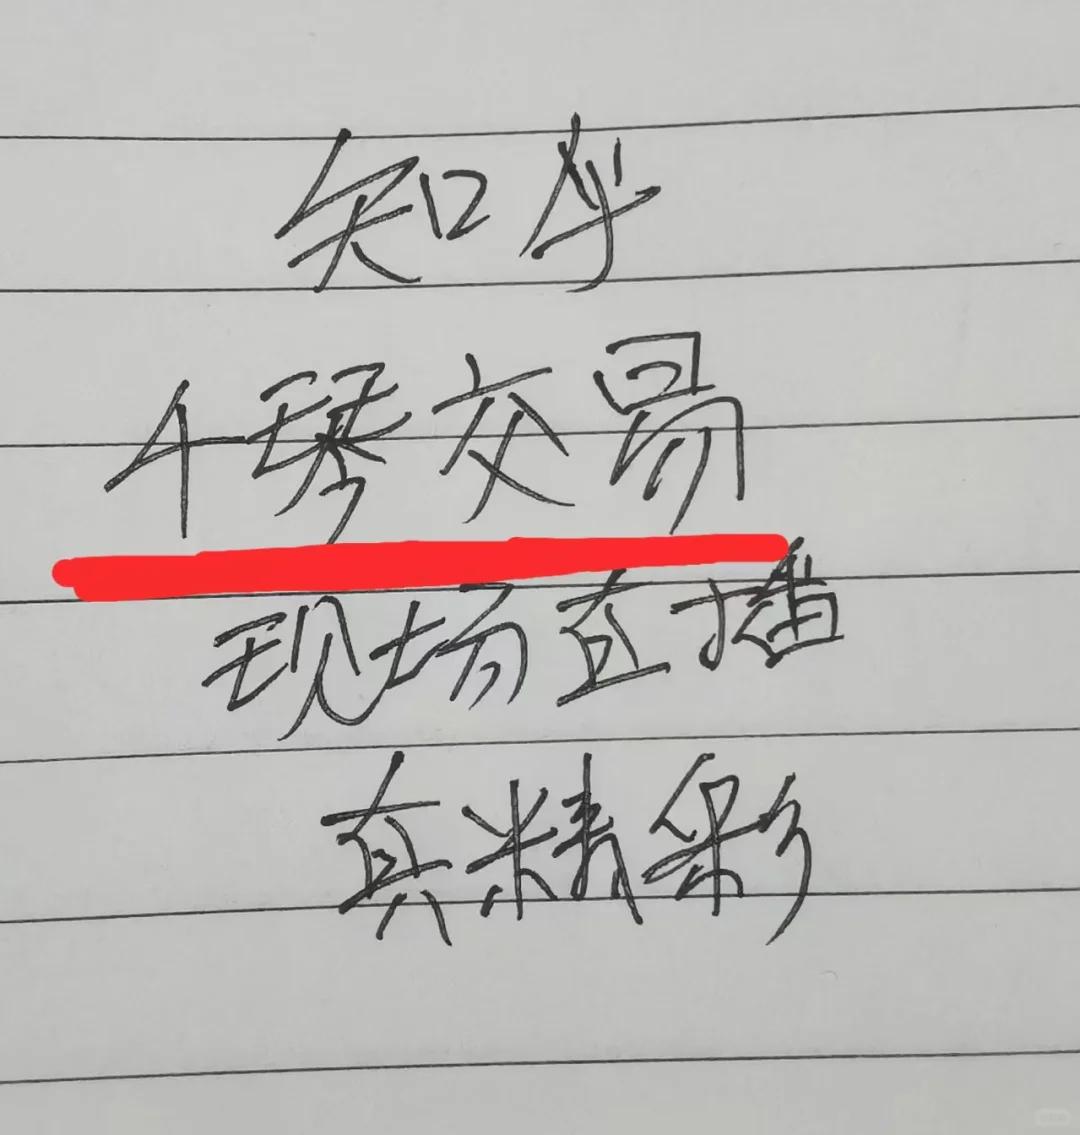 知乎
个琴交易
现场直播
真精彩